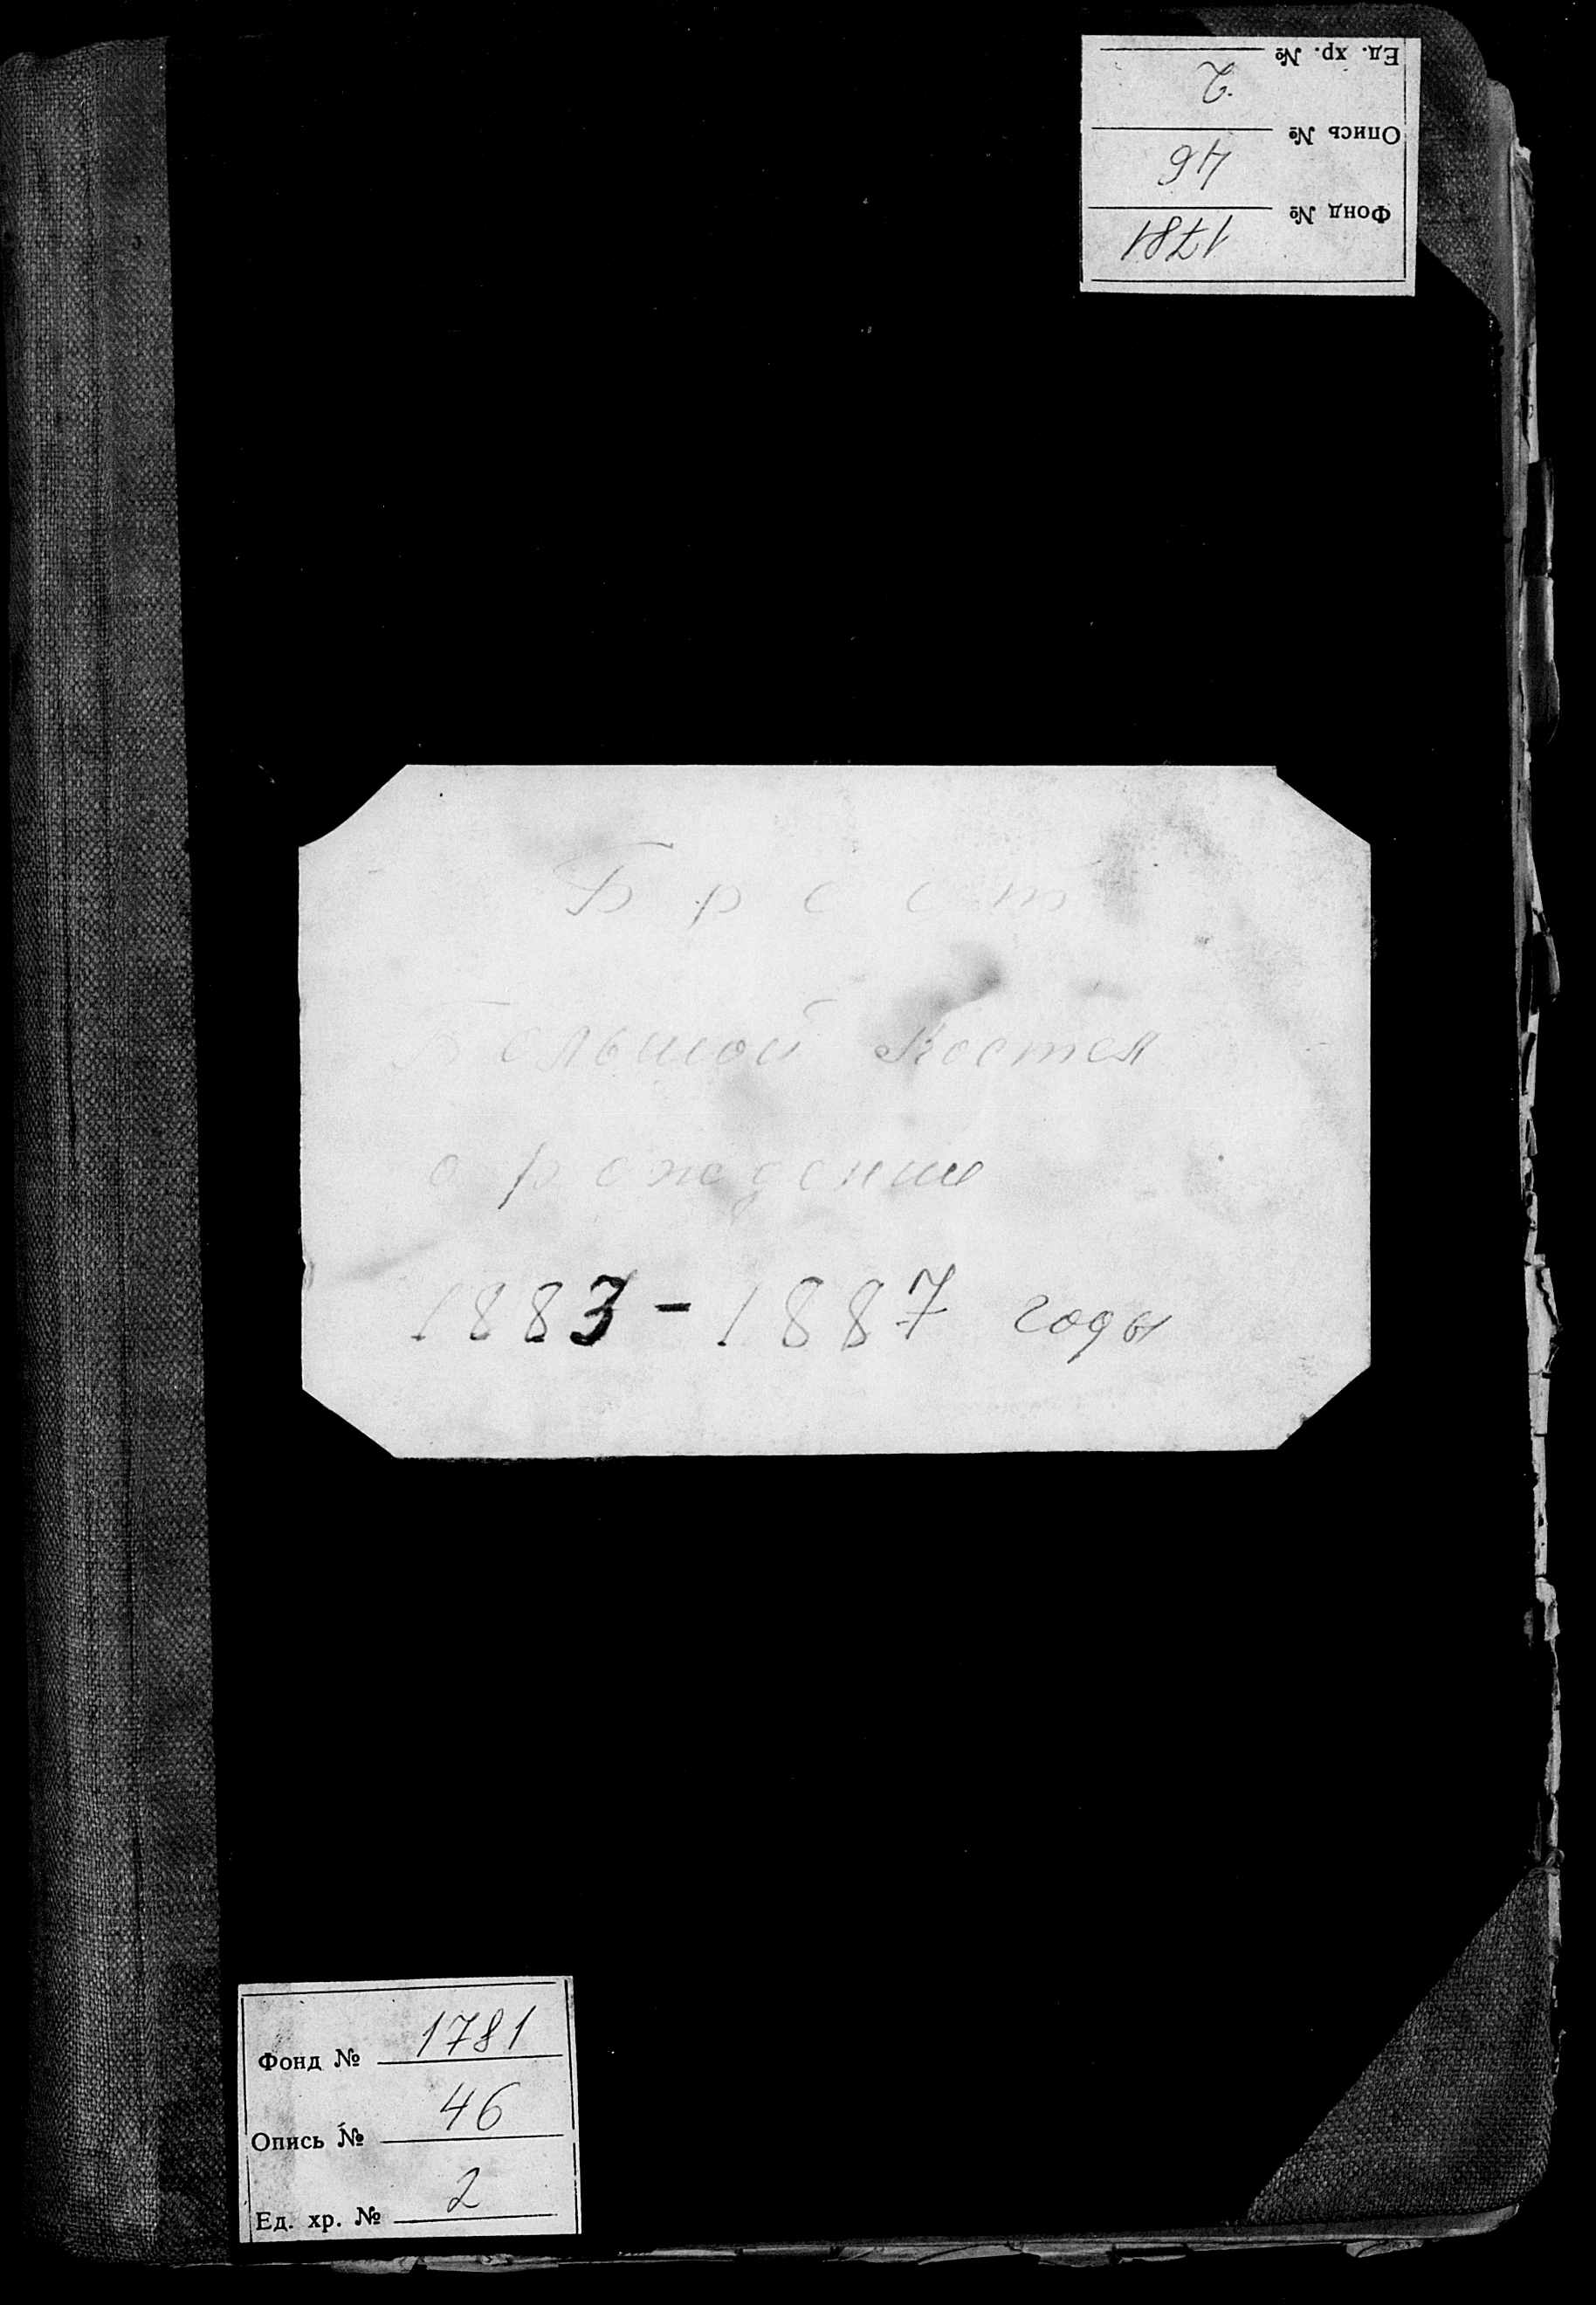 Ед. хр. № 2
Опись № 46
Фонд № 1781
Брест
Большой костел
о рождении
1883-1887 годы
Фонд № 1781
Опись № 46
Ед. хр. № 2